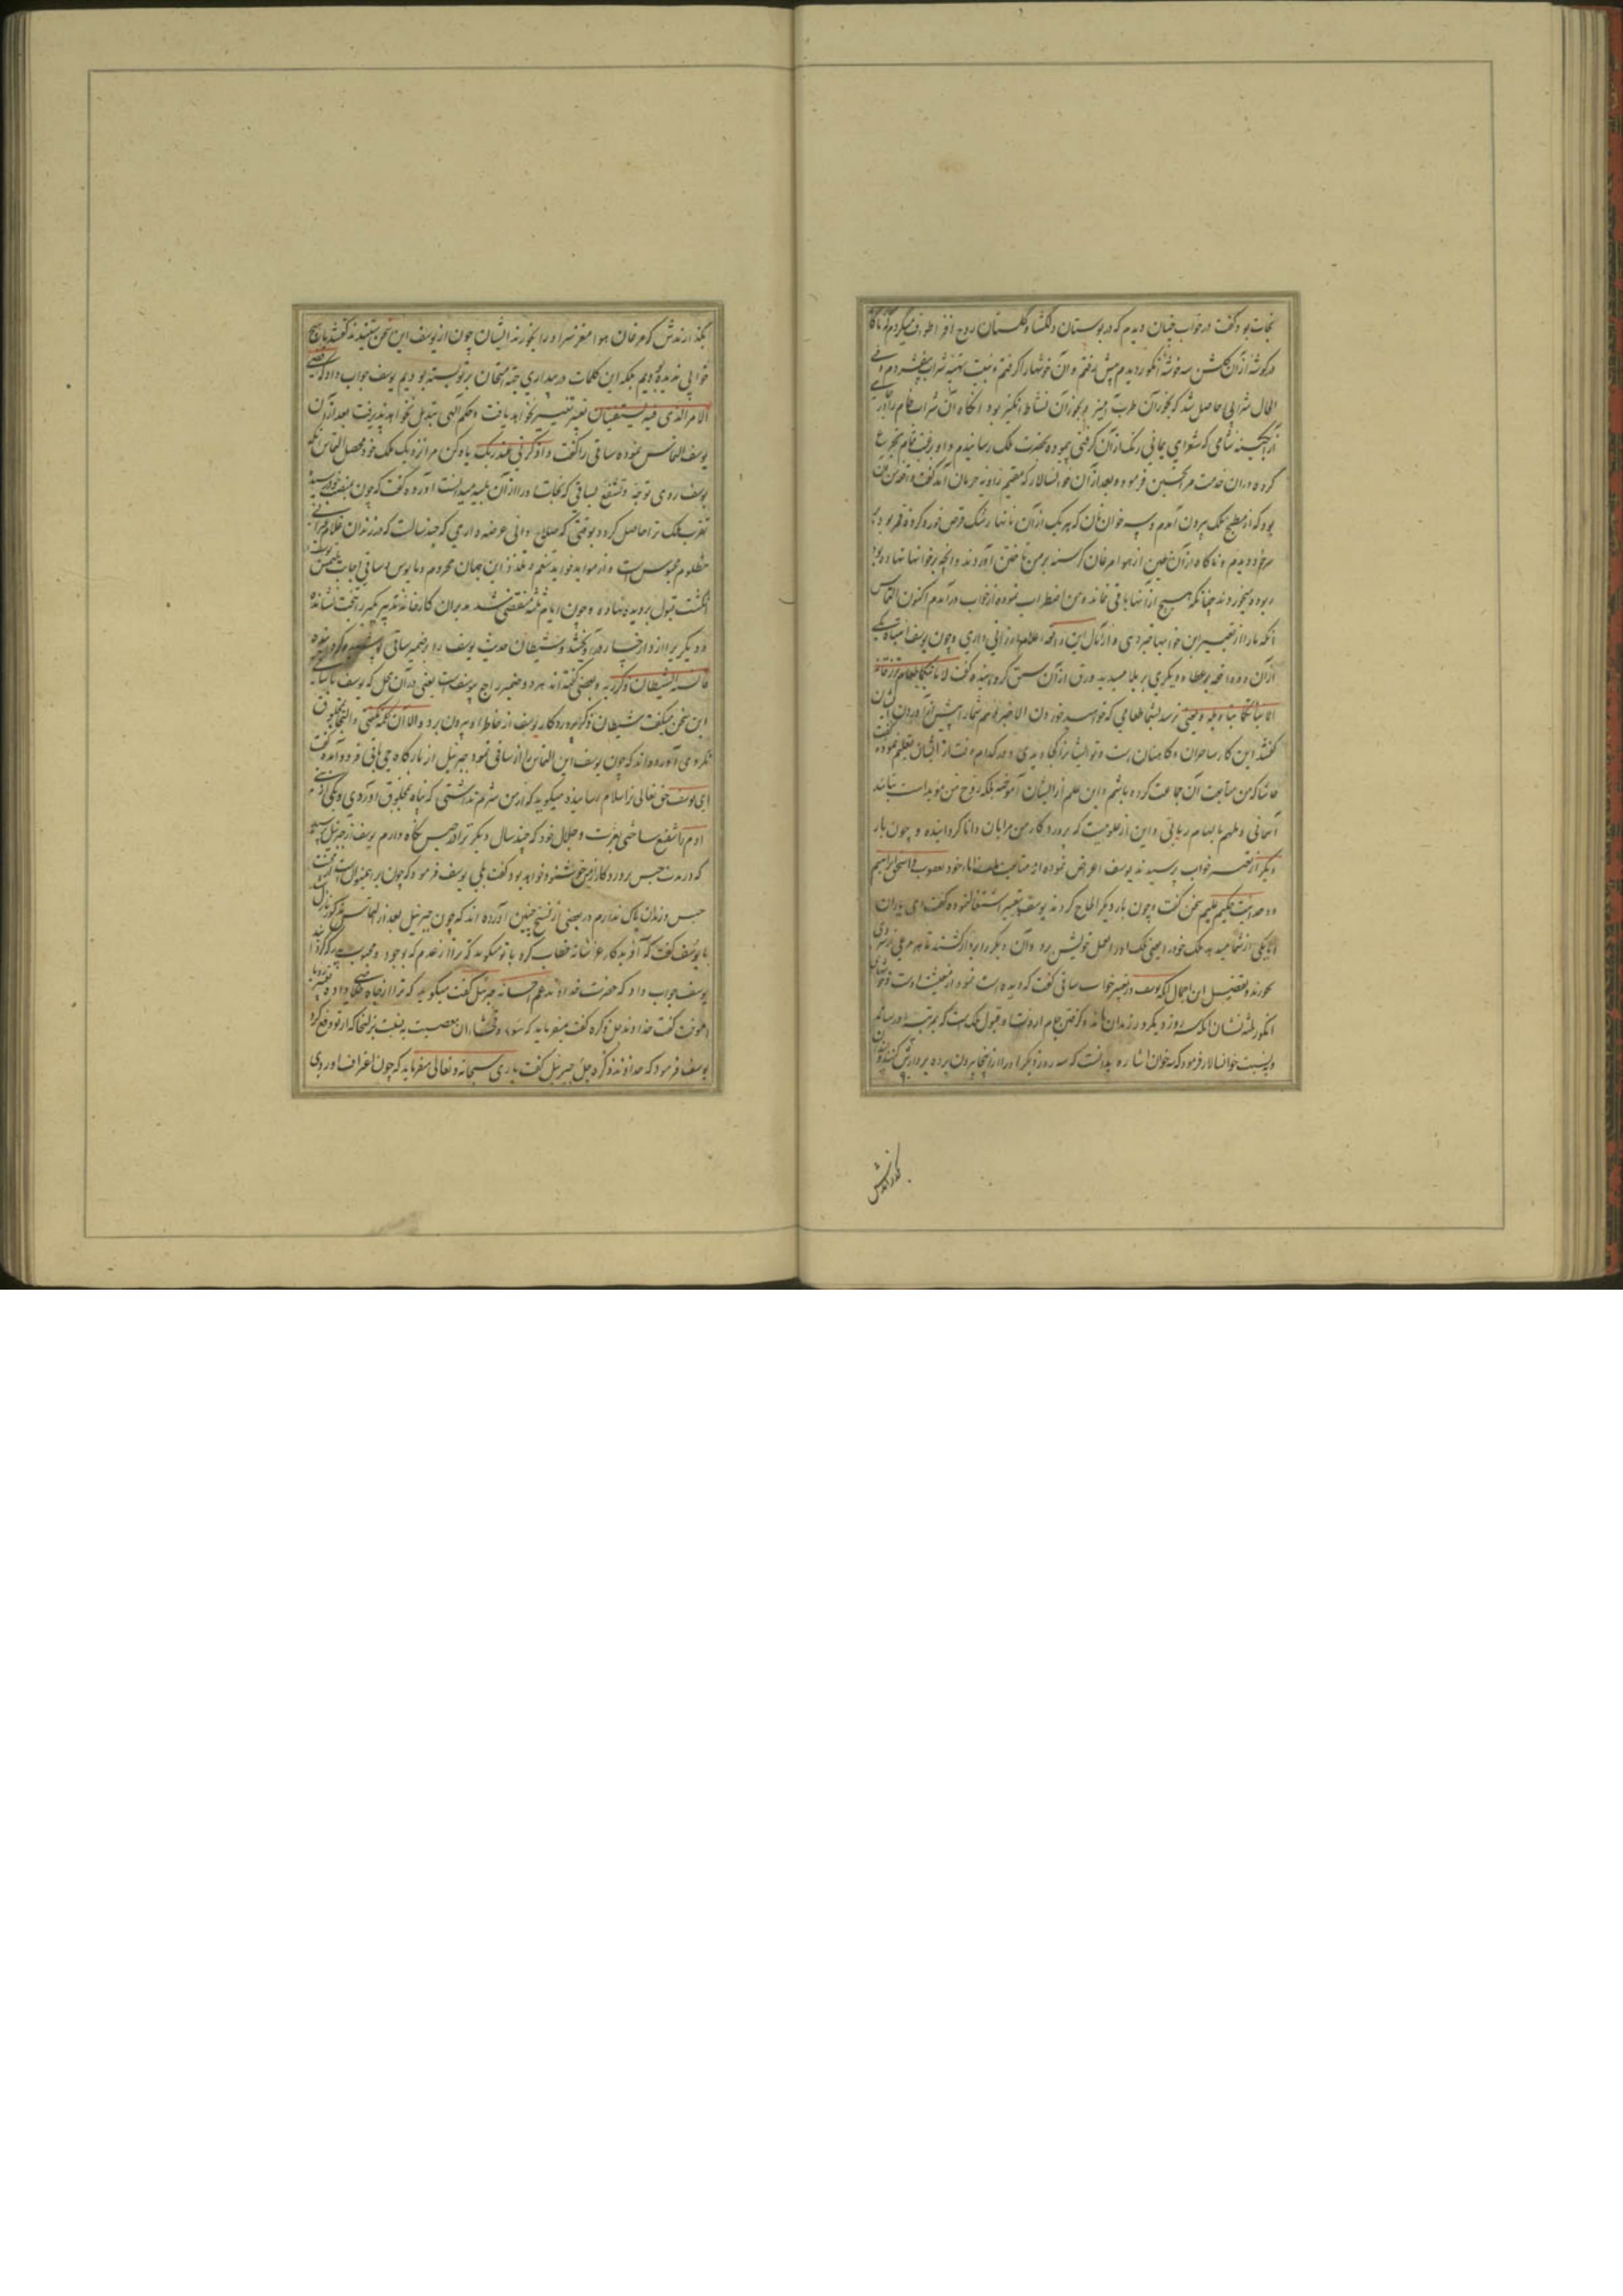 نجات بود گفت در خواب چنان دیدم که در بوستان دلگشا و گلستان روح افزا طوف میکردم که ناگاه
در گوشه از آن گلشن سه خوشه انگور دیدم پیش رفتم و آن خوشها را گرفتم و به نیت تهیه شراب بیفشردم و فی
الحال شرابی حاصل شد که بخور آن طرب آمیز و بخار آن نشاط انگیز بود آنگاه آن شراب خام را در
آبگینه شامی که شعرای یمانی رنگ از آن گرفتی پیموده بحضرت ملک رسانیدم و او برغبت تمام تجرع
کرده در آن خدمت مرا تحسین فرموده بعد از آن خوانسالار که مقیم زاویه حرمان آمد گفت واقعه من چنان
بود که از مطبخ ملک بیرون آمدم و سه خوان نان که هر یک از آن نانها رشک قرص خور و گرده قمر بود بر
سر خود دیدم و ناگاه در آن حین از هوا مرغان گرسنه بر من تاختن آوردند و آنچه بر خوانها نهاده بود
ربوده میخوردند چنانکه هیچ از آنها باقی نماند و من اضطراب نموده از خواب درآمدم اکنون التماس
آنکه ما را از تعبیر این خوابها خبر دهی و از مآل این واقعه اعلام ارزانی داری و چون یوسف
از آن دو واقعه بر عطا و دیگری بر بلا میدید ورق از آن سبق گردانیده گفت لا یاتیکما طعام ترزقانه
الا نباتکما بتاویله یعنی نرسد بشما طعامی که خواهید خوردن الا خبر دهم شما را پیش از آوردن ایشان
گفتند این کار ساحران و کاهنان است و تو ایشانرا کجا دیدی و در کدام وقت از ایشان تعلیم نموده گفت
حاشا که من متابعت آن جماعت کرده باشم و این علم از ایشان آموخته بلکه روح من مؤید است بتائید
آسمانی و ملهم بالهام ربانی و این از علومیست که پروردگار من مرا بان دانا گردانیده و چون بار
دیگر از تعبیر خواب پرسیدند یوسف اعراض نموده از متابعت ملت آباء خود یعقوب و اسحق و ابراهیم
و وحدانیت حکیم علیم سخن گفت و چون بار دیگر الحاح کردند یوسف بتعبیر اشتغال نموده گفت ای یاران
اما یکی از شما می دهد ملک خود را یعنی ملک او را بعمل خویش برد و آن دیگر را بر دار کشند تا مرغان از سر وی
بخورند و تفصیل این اجمال آنکه یوسف در تعبیر خواب ساقی گفت که
انگور نشان آنکه سه روز دیگر در زندان ماند و گرفتن جام از دست او قبول ملک است که بمرتبه
و به نسبت خوانسالار فرمود که سه خوان اشاره بدانست که سه روز دیگر او را از اینجا بیرون برده بر دارش کنند و
بگذارندش
بگذارندش که مرغان هوا مغز سر او را بخورند ایشان چون از یوسف این سخن شنیدند گفتند ما هیچ
خوابی ندیده بودیم بلکه این کلمات در بیداری جهة امتحان بر تو بسته بودیم یوسف جواب داد که قضی
الامر الذی فیه تستفتیان تعبیر تغییر نخواهد یافت و حکم الهی تبدیل نخواهد پذیرفت بعد از آن
یوسف التماس نموده ساقی را گفت و اذکرنی عند ربک یاد کن مرا نزدیک ملک خود محصل التماس آنکه
یوسف روی توجه و تشفع بساقی که نجات او را از آن بلیه میدانست آورده گفت که چون بمنصب خود رسیده
تقرب ملک ترا حاصل گردد بوقتی که صلاح دانی عرضه داری که چند سالست که در زندان غلام عبرانی
مظلوم محبوس است و از مواید فواید تنعم و تلذذ این جهان محروم و مایوس و ساقی اجابت ملتمس یوسف را
انگشت قبول بر دیده نهاده و چون ایام ثلثه منقضی شد مدبران کارخانه تقدیر یکی را بر تخت نشانده
و دیگریرا از دار آویختند و شیطان حدیث یوسف را از ضمیر ساقی
فانسیه الشیطان ذکر ربه و بعضی گفته‌اند هر دو ضمیر راجع بیوسفست یعنی در آن محل که یوسف با ساقی
این سخن میگفت شیطان ذکر پروردگار یوسف از خاطر او بیرون برد و الا آن کلمه نگفتی و التجا بمخلوق
نکردی آورده‌اند که چون یوسف این التماس از ساقی نمود جبرئیل از بارگاه وحی الهی فرود آمده گفت
ای یوسف حق تعالی ترا سلام میرساند و میگوید که از من شرم نداشتی که پناه بمخلوق آوردی و یکی از بنی
آدم را شفیع ساختی بعزت و جلال خود که چند سال دیگر ترا در حبس نگاه دارم یوسف از جبرئیل پرسید
که در مدت حبس پروردگار از من خوشنود خواهد بود گفت بلی یوسف فرمود که چون بر این منوال است از محنت
حبس و زندان باک ندارم و در بعضی از نسخ چنین آورده‌اند که چون جبرئیل بعد از التماس مذکور نازل شد
با یوسف گفت که آفریدگار عز شانه خطاب کرده با تو میگوید که ترا از عدم که بوجود
یوسف جواب داد که حضرت خداوند عم احسانه جبرئیل گفت میگوید که ترا از چاه خلاصی داد
گفت خداوند جل ذکره گفت میفرماید که سوء و فحشا و آن معصیت به نسبت زلیخا که از تو دفع کرد
یوسف فرمود که خداوند ذکره جل جبرئیل گفت باری سبحانه و تعالی میفرماید که چون اعتراف آوردی